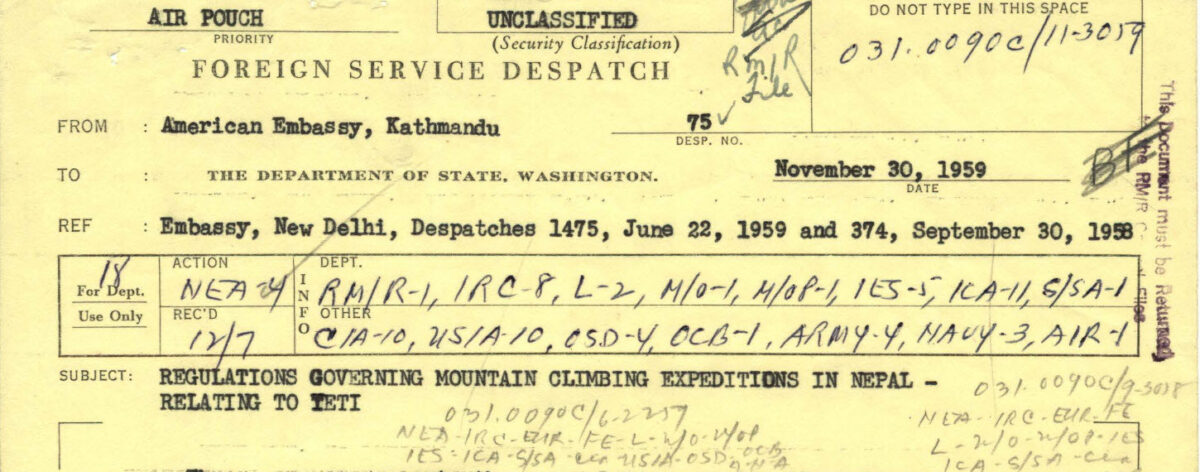 AIR POUCH
PRIORITY
UNCLASSIFIED
(Security Classification)
DO NOT TYPE IN THIS SPACE
031.0090C/11-3059
RM/R
File
FOREIGN SERVICE DESPATCH
FROM : American Embassy, Kathmandu
75
DESP. NO.
TO : THE DEPARTMENT OF STATE, WASHINGTON.
November 30, 1959
DATE
REF : Embassy, New Delhi, Despatches 1475, June 22, 1959 and 374, September 30, 1958
18
For Dept.
Use Only
ACTION
NEA-4
REC'D
12/7
INFO
DEPT.
RM/R-1, IRC-8, L-2, M/O-1, M/OP-1, IES-5, ICA-11, S/SA-1
OTHER
CIA-10, USIA-10, OSD-4, OCB-1, ARMY-4, NAVY-3, AIR-1
This Document must be Returned
the RM/R
Files
SUBJECT: REGULATIONS GOVERNING MOUNTAIN CLIMBING EXPEDITIONS IN NEPAL -
RELATING TO YETI
031.0090C/6-2259
NEA-IRC-EUR-FE-L-M/O-M/OP
IES-ICA-S/SA-CIA-USIA-OSD-OCB
031.0090C/9-3058
NEA-IRC-EUR-FE
L-M/O-M/OP-IES
ICA-S/SA-CIA